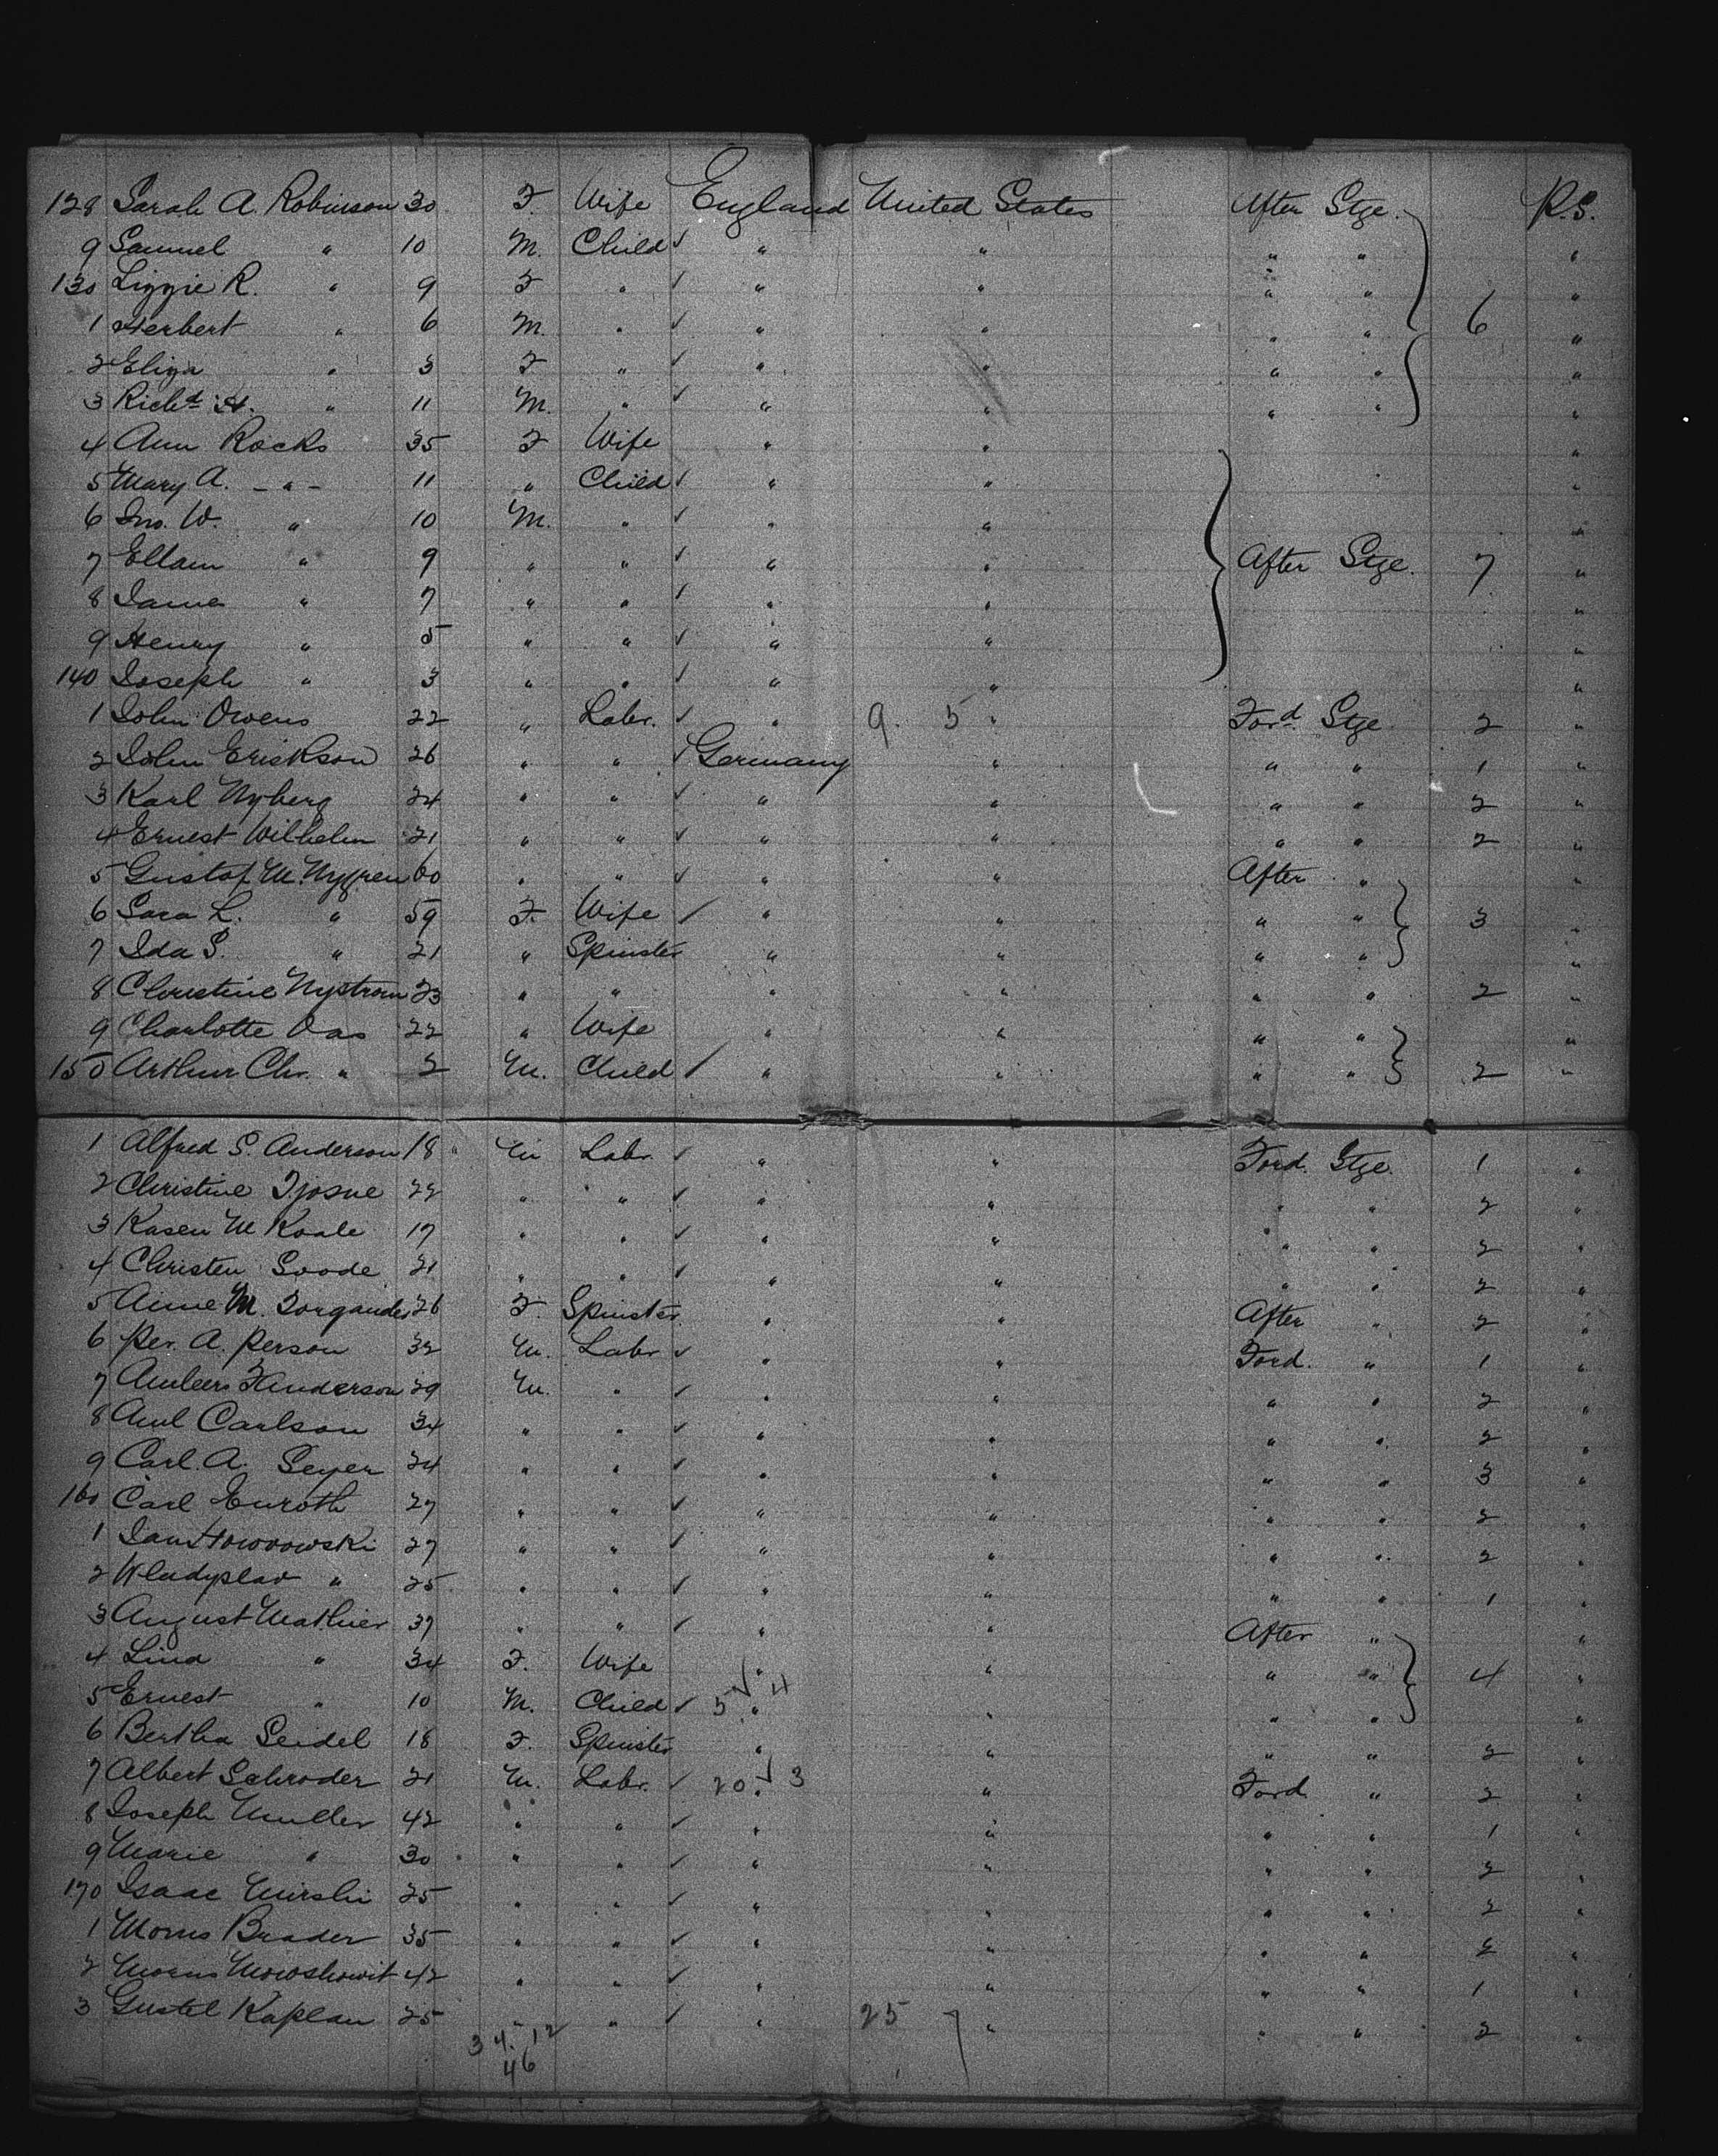 128 Sarah A. Robinson 30 F. Wife England United States After Stge. P.S.
9 Samuel " 10 M. Child ✓ " " " " "
130 Lizzie R. " 9 F " ✓ " " " " "
1 Herbert " 6 M. " ✓ " " " " 6 "
2 Eliza " 3 F " ✓ " " " " "
3 Richd H. " 11 M. " ✓ " " " " "
4 Ann Rocks 35 F Wife " " "
5 Mary A. - " - 11 " Child ✓ " " "
6 Jno. W. " 10 M. " ✓ " " "
7 " 9 " " ✓ " " After Stge. 7 "
8 James " 7 " " ✓ " " "
9 Henry " 5 " " ✓ " " "
140 Joseph " 3 " " ✓ " " "
1 John Owens 22 " Labr. ✓ " 9. 5 " Ford Stge 2 "
2 John Erickson 26 " " ✓ Germany " " " 1 "
3 Karl Nyberg 24 " " ✓ " " " " 2 "
4 Ernest Wilhelm 21 " " ✓ " " " " 2 "
5 Gustaf M. Nygren 60 " " ✓ " " After " "
6 Sara L. " 59 F. Wife ✓ " " " " 3 "
7 Ida S. " 21 " Spinster " " " " "
8 Christine Nystrom 23 " " " " " " 2 "
9 Charlotte 22 " Wife " " " " "
150 Arthur Chr. " 2 M. Child ✓ " " " " 2 "
1 Alfred S. Anderson 18 M Labr. ✓ " " Ford. Stge. 1 "
2 Christine 22 " " ✓ " " " " 2 "
3 M 17 " " ✓ " " " " 2 "
4 Christen 21 " " ✓ " " " " 2 "
5 M. 26 F. Spinster " " After " 2 "
6 Per. A. Person 32 M. Labr ✓ " " Ford. " 1 "
7 Anderson 29 M. " ✓ " " " " 2 "
8 Carlson 34 " " ✓ " " " " 2 "
9 Carl. A. 24 " " ✓ " " " " 3 "
160 Carl Enroth 27 " " ✓ " " " " 2 "
1 Jan 27 " " ✓ " " " " 2 "
2 Wladyslav " 25 " " ✓ " " " " 1 "
3 August Mathier 37 " " ✓ " " After " "
4 Lina " 34 F. Wife " " " " 4 "
5 Ernest " 10 M. Child ✓ 5 ✓ 4 " " " " "
6 Bertha Seidel 18 F. Spinster " " " " 2 "
7 Albert Schroder 21 M. Labr. ✓ 20 ✓ 3 " " Ford " 2 "
8 Joseph Muller 42 " " ✓ " " " " 1 "
9 Marie " 30 " " ✓ " " " " 2 "
170 Isaac 25 " " ✓ " " " " 2 "
1 Morris Brader 35 " " ✓ " " " " 2 "
2 42 " " ✓ " " " " 1 "
3 Gustel Kaplan 25 " " ✓ " 25 7 " " " 2 "
34. 12
46